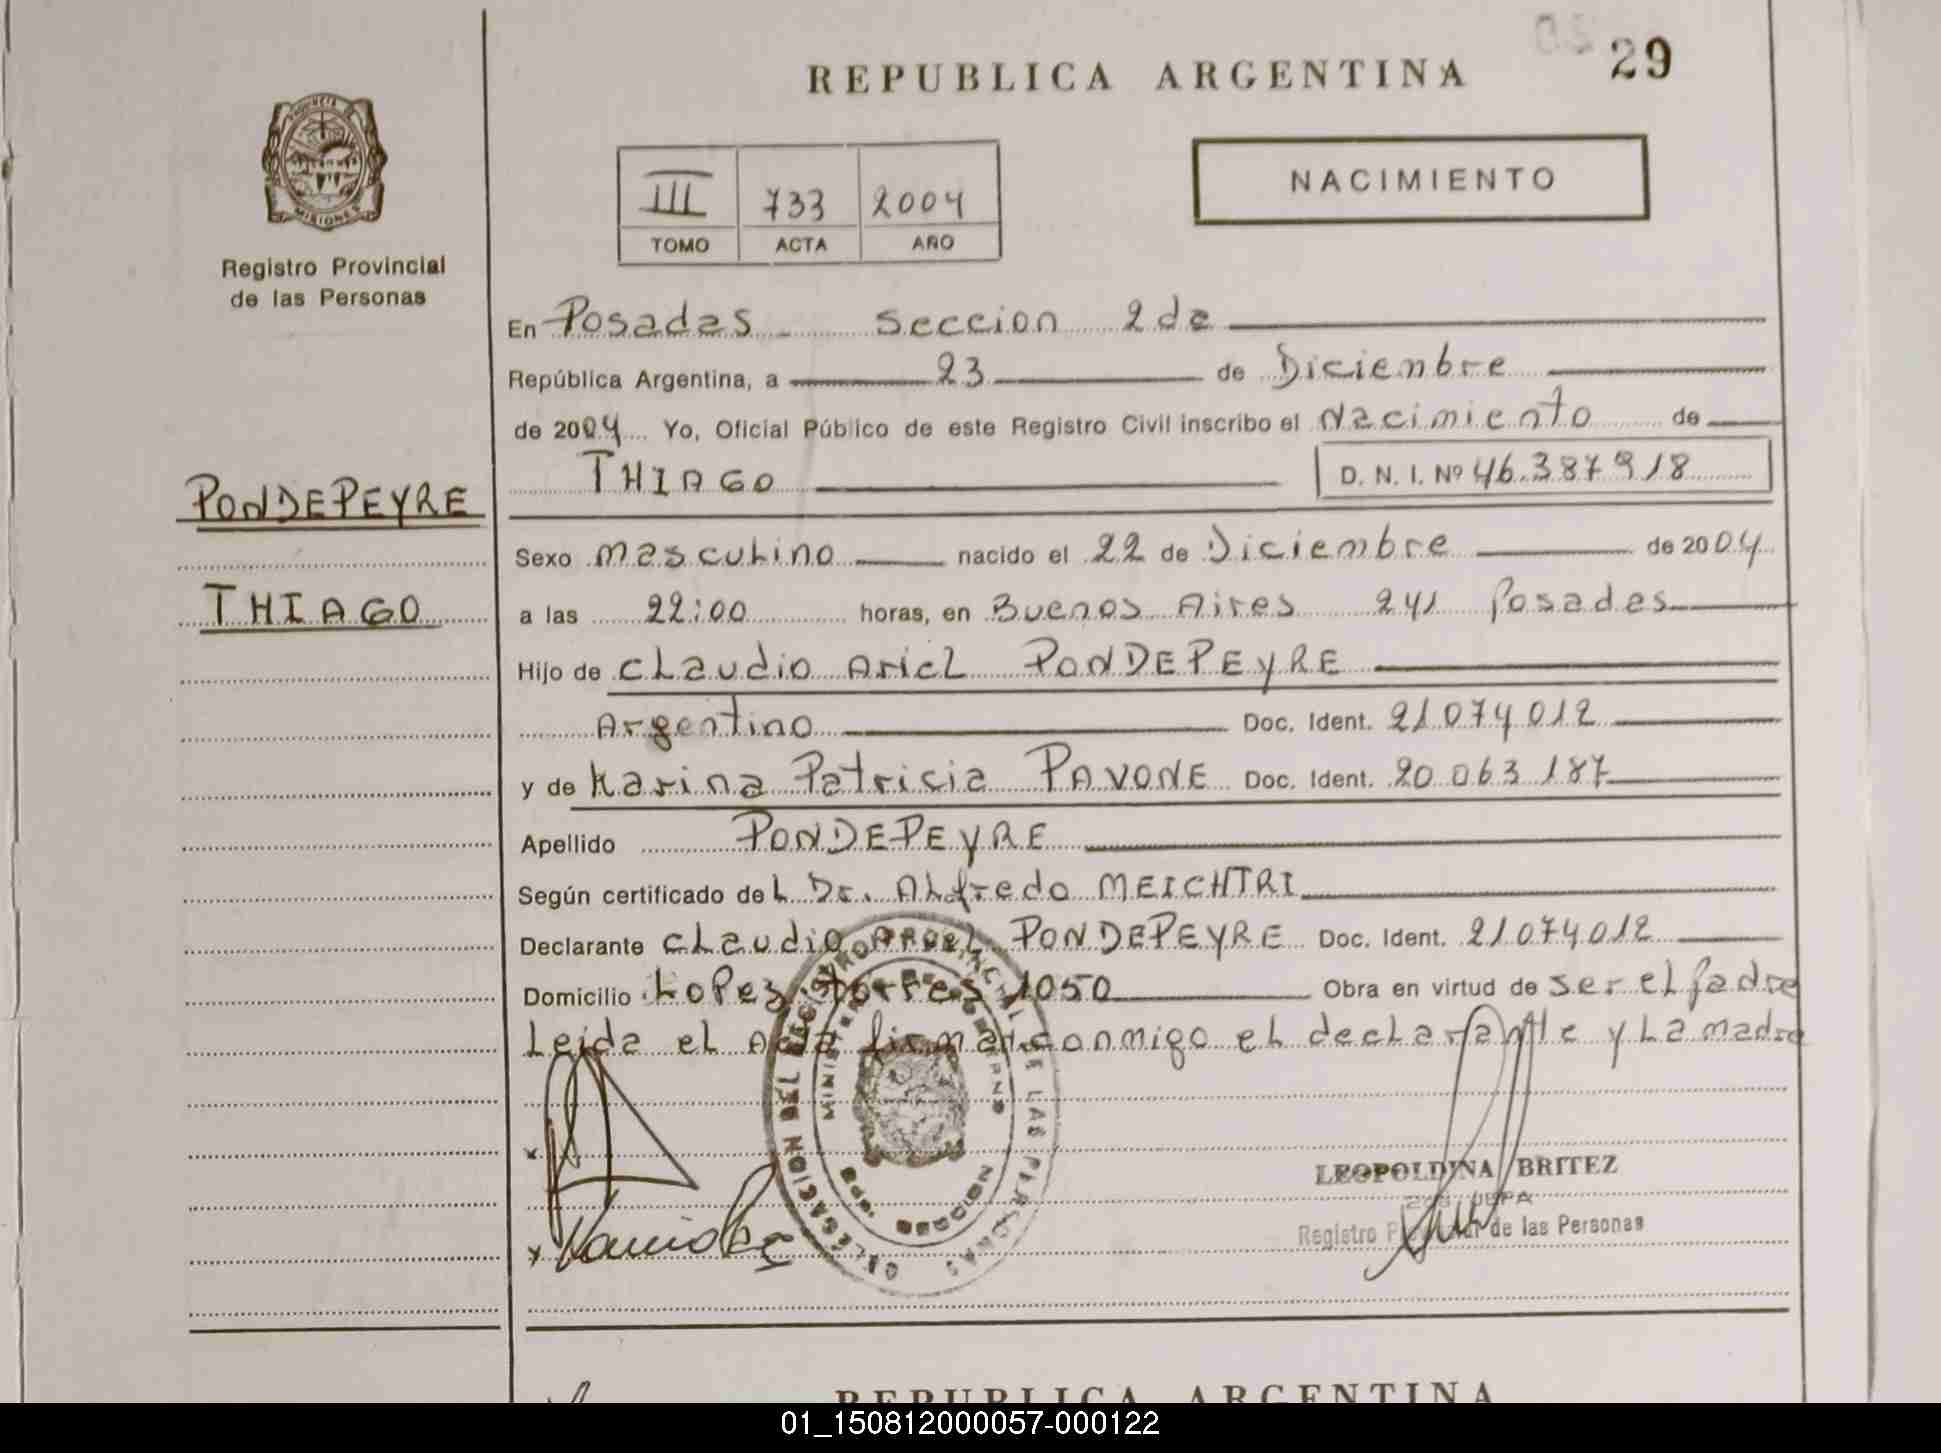 29
REPUBLICA ARGENTINA
PROVINCIA DE MISIONES
Registro Provincial
de las Personas
III 733 2004
TOMO ACTA AÑO
NACIMIENTO
En Posadas sección 2da
República Argentina, a 23 de Diciembre
de 2004 Yo, Oficial Público de este Registro Civil inscribo el Nacimiento de
THIAGO D. N. I. Nº 46.387918
PONDEPEYRE
THIAGO
Sexo masculino nacido el 22 de Diciembre de 2004
a las 22:00 horas, en Buenos Aires 241 Posadas
Hijo de Claudio Ariel PONDEPEYRE
Argentino Doc. Ident. 21074012
y de Karina Patricia PAVONE Doc. Ident. 20 063 187
Apellido PONDEPEYRE
Según certificado del Dr. Alfredo MEICHTRI
Declarante Claudio Ariel PONDEPEYRE Doc. Ident. 21074012
Domicilio Lopez torres 1050 Obra en virtud de ser el padre
Leida el Acta firman conmigo el declarante y La madre
DELEGACION DEL REGISTRO PROVINCIAL DE LAS PERSONAS
LEOPOLDINA BRITEZ
Registro Provincial de las Personas
REPUBLICA ARGENTINA
01_150812000057-000122